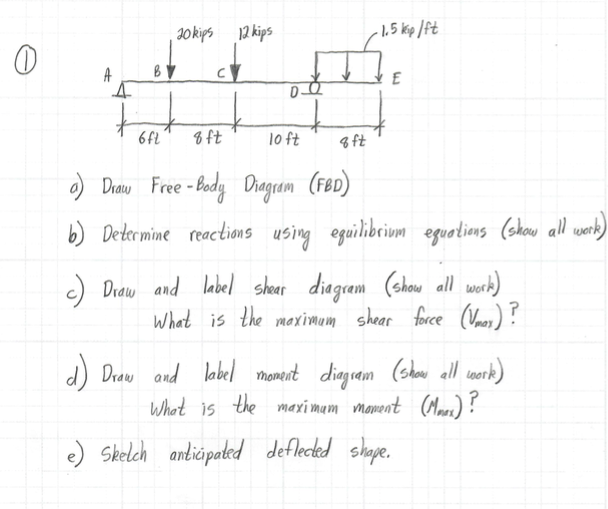 20 kips 12 kips 1.5 kip/ft
①
A B C D E
6 ft 8 ft 10 ft 8 ft
a) Draw Free-Body Diagram (FBD)
b) Determine reactions using equilibrium equations (show all work)
c) Draw and label shear diagram (show all work)
What is the maximum shear force (Vmax)?
d) Draw and label moment diagram (show all work)
What is the maximum moment (Mmax)?
e) Sketch anticipated deflected shape.